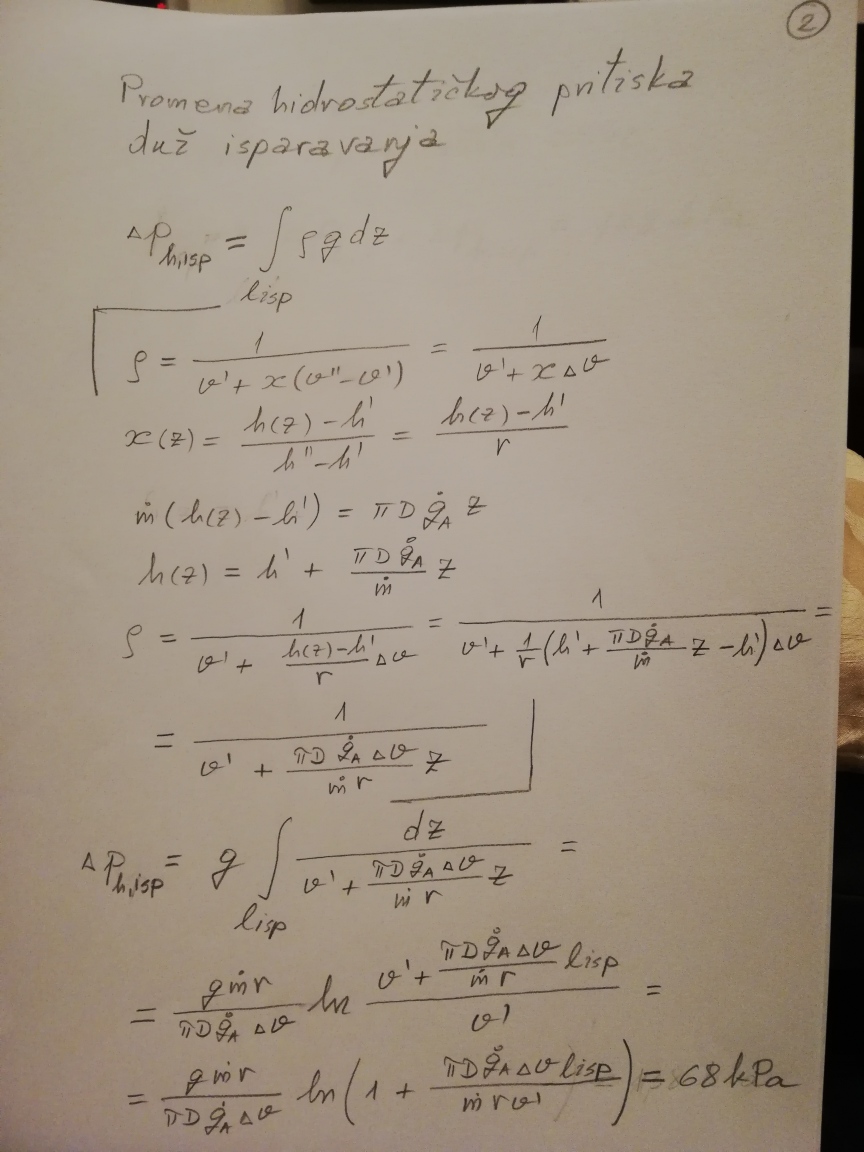 2
Promena hidrostatičkog pritiska
duž isparavanja
Δp_{h,isp} = ∫_{lisp} ρ g dz
ρ = 1 / (v' + x(v'' - v')) = 1 / (v' + x Δv)
x(z) = (h(z) - h') / (h'' - h') = (h(z) - h') / r
ṁ (h(z) - h') = π D q̇_A z
h(z) = h' + (π D q̇_A / ṁ) z
ρ = 1 / (v' + ((h(z) - h') / r) Δv) = 1 / (v' + (1/r)(h' + (π D q̇_A / ṁ) z - h') Δv) =
= 1 / (v' + (π D q̇_A Δv / (ṁ r)) z)
Δp_{h,isp} = g ∫_{lisp} dz / (v' + (π D q̇_A Δv / (ṁ r)) z) =
= (g ṁ r / (π D q̇_A Δv)) ln ((v' + (π D q̇_A Δv / (ṁ r)) lisp) / v') =
= (g ṁ r / (π D q̇_A Δv)) ln (1 + (π D q̇_A Δv lisp) / (ṁ r v')) = 68 kPa